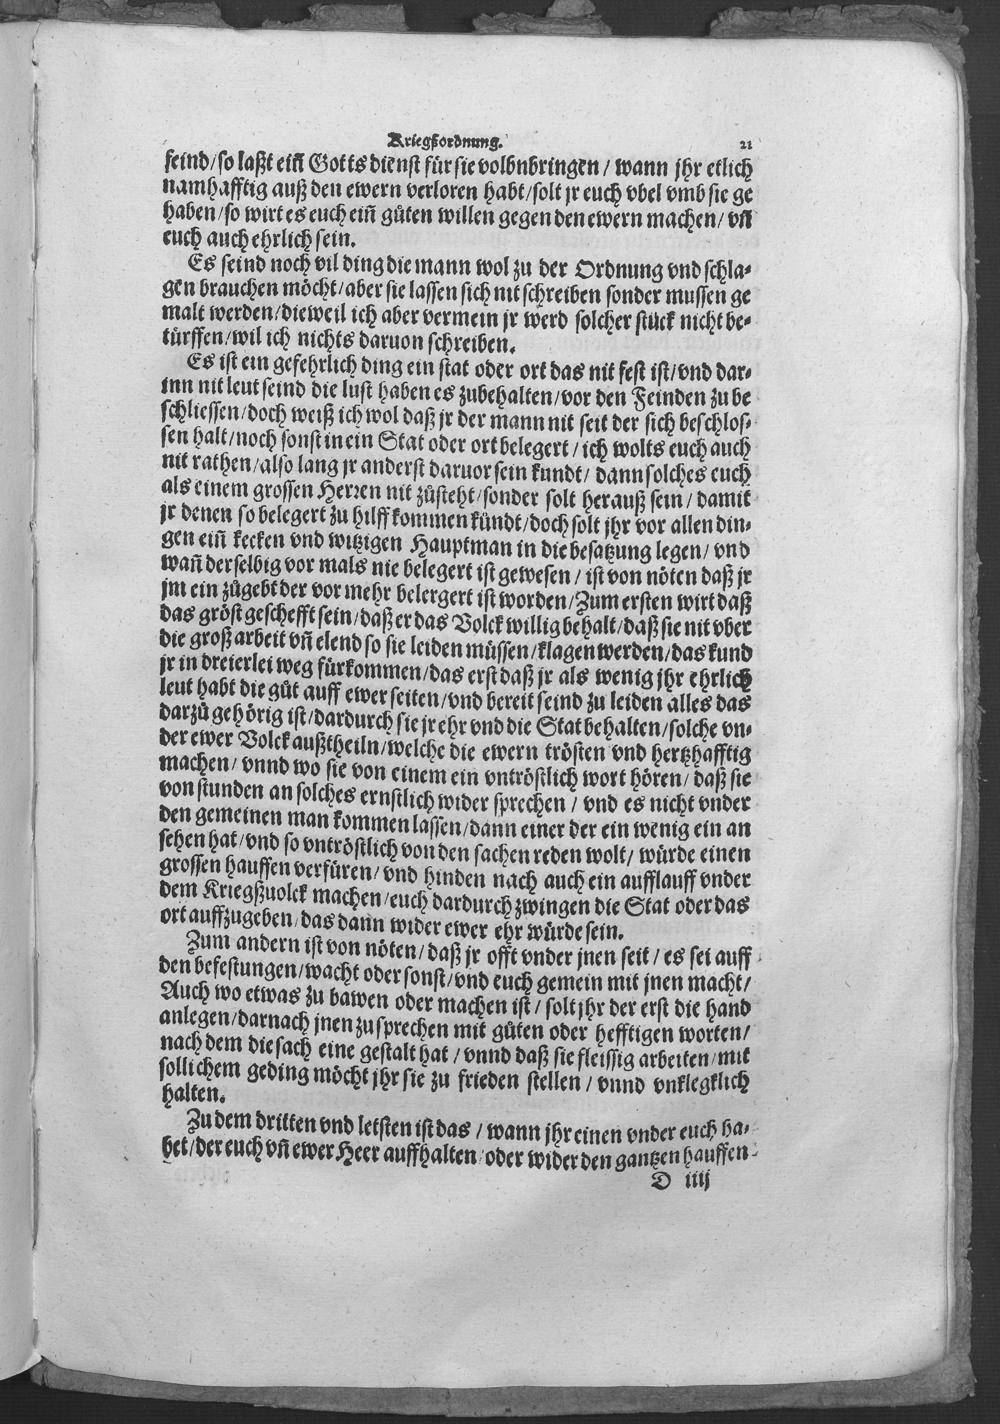 Kriegßordnung. 21
feind/so laßt eiñ Gotts dienst für sie volbnbringen/ wann jhr etlich
namhafftig auß den ewern verloren habt/solt jr euch vbel vmb sie ge
haben/so wirt es euch eiñ gůten willen gegen den ewern machen/ vñ
euch auch ehrlich sein.
Es seind noch vil ding die mann wol zu der Ordnung vnd schla-
gen brauchen möcht/aber sie lassen sich nit schreiben sonder mussen ge
malt werden/dieweil ich aber vermein jr werd solcher stück nicht be-
türffen/wil ich nichts daruon schreiben.
Es ist ein gefehrlich ding ein stat oder ort das nit fest ist/vnd dar-
inn nit leut seind die lust haben es zubehalten/vor den Feinden zu be
schliessen/doch weiß ich wol daß jr der mann nit seit der sich beschlos-
sen halt/noch sonst in ein Stat oder ort belegert/ich wolts euch auch
nit rathen/also lang jr anderst daruor sein kundt/dann solches euch
als einem grossen Herren nit zůsteht/sonder solt herauß sein/ damit
jr denen so belegert zu hilff kommen kündt/doch solt jhr vor allen din-
gen eiñ kecken vnd witzigen Hauptman in die besatzung legen/ vnd
wañ derselbig vor mals nie belegert ist gewesen/ ist von nöten daß jr
jm ein zůgebt der vor mehr belergert ist worden/Zum ersten wirt daß
das gröst geschefft sein/daß er das Volck willig behalt/daß sie nit vber
die groß arbeit vñ elend so sie leiden müssen/klagen werden/das kund
jr in dreierlei weg fürkommen/das erst daß jr als wenig jhr ehrlich
leut habt die gůt auff ewer seiten/vnd bereit seind zu leiden alles das
darzů gehörig ist/dardurch sie jr ehr vnd die Stat behalten/solche vn-
der ewer Volck außtheiln/welche die ewern trösten vnd hertzhafftig
machen/ vnnd wo sie von einem ein vntröstlich wort hören/ daß sie
von stunden an solches ernstlich wider sprechen/ vnd es nicht vnder
den gemeinen man kommen lassen/dann einer der ein wenig ein an
sehen hat/vnd so vntröstlich von den sachen reden wolt/ würde einen
grossen hauffen verfüren/ vnd hinden nach auch ein aufflauff vnder
dem Kriegßuolck machen/euch dardurch zwingen die Stat oder das
ort auffzugeben/das dann wider ewer ehr würde sein.
Zum andern ist von nöten/daß jr offt vnder jnen seit/ es sei auff
den befestungen/wacht oder sonst/vnd euch gemein mit jnen macht/
Auch wo etwas zu bawen oder machen ist/ solt jhr der erst die hand
anlegen/darnach jnen zu sprechen mit gůten oder hefftigen worten/
nach dem die sach eine gestalt hat/vnnd daß sie fleissig arbeiten/mit
sollichem geding möcht jhr sie zu frieden stellen/ vnnd vnklegklich
halten.
Zu dem dritten vnd letsten ist das/ wann jhr einen vnder euch ha-
bet/der euch vñ ewer Heer auffhalten/oder wider den gantzen hauffen
D iiij